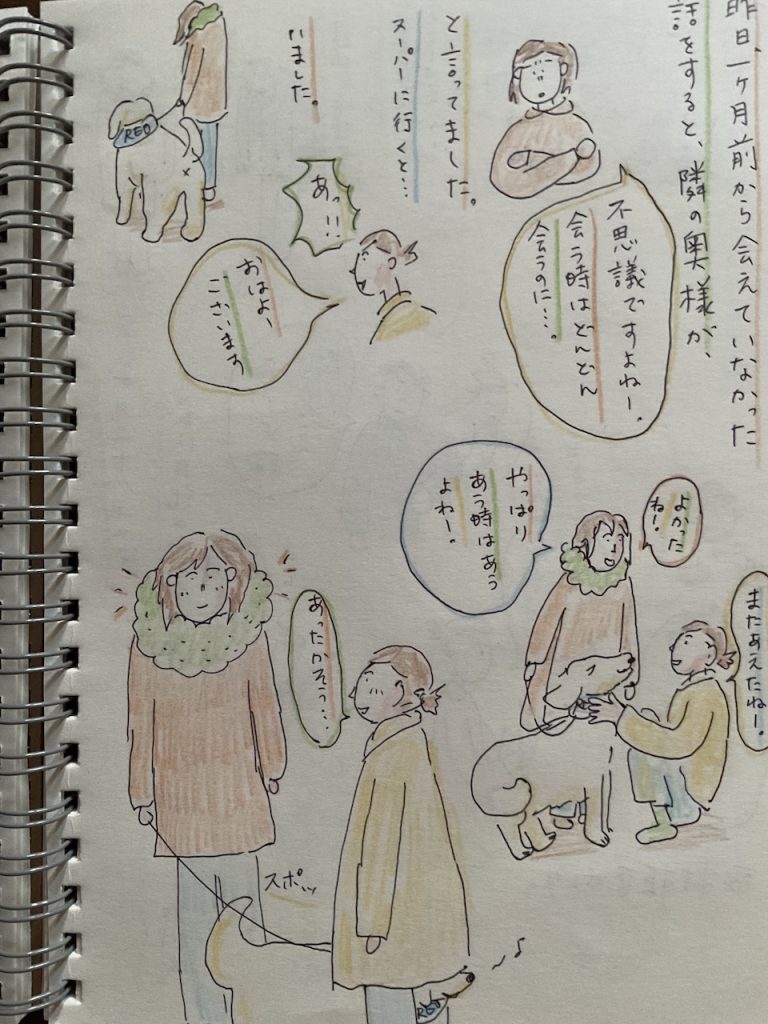 昨日、一ヶ月前から会えていなかった
話をすると、隣の奥様が、
不思議ですよねー。
会う時はどんどん
会うのに…。
と言ってました。
スーパーに行くと…
いました。
REO
あっ!!
おはよ、
ございます
よかった
ね!
やっぱり
あう時はあう
よねー。
またあえたねー。
あったかそう…
スポッ
REO